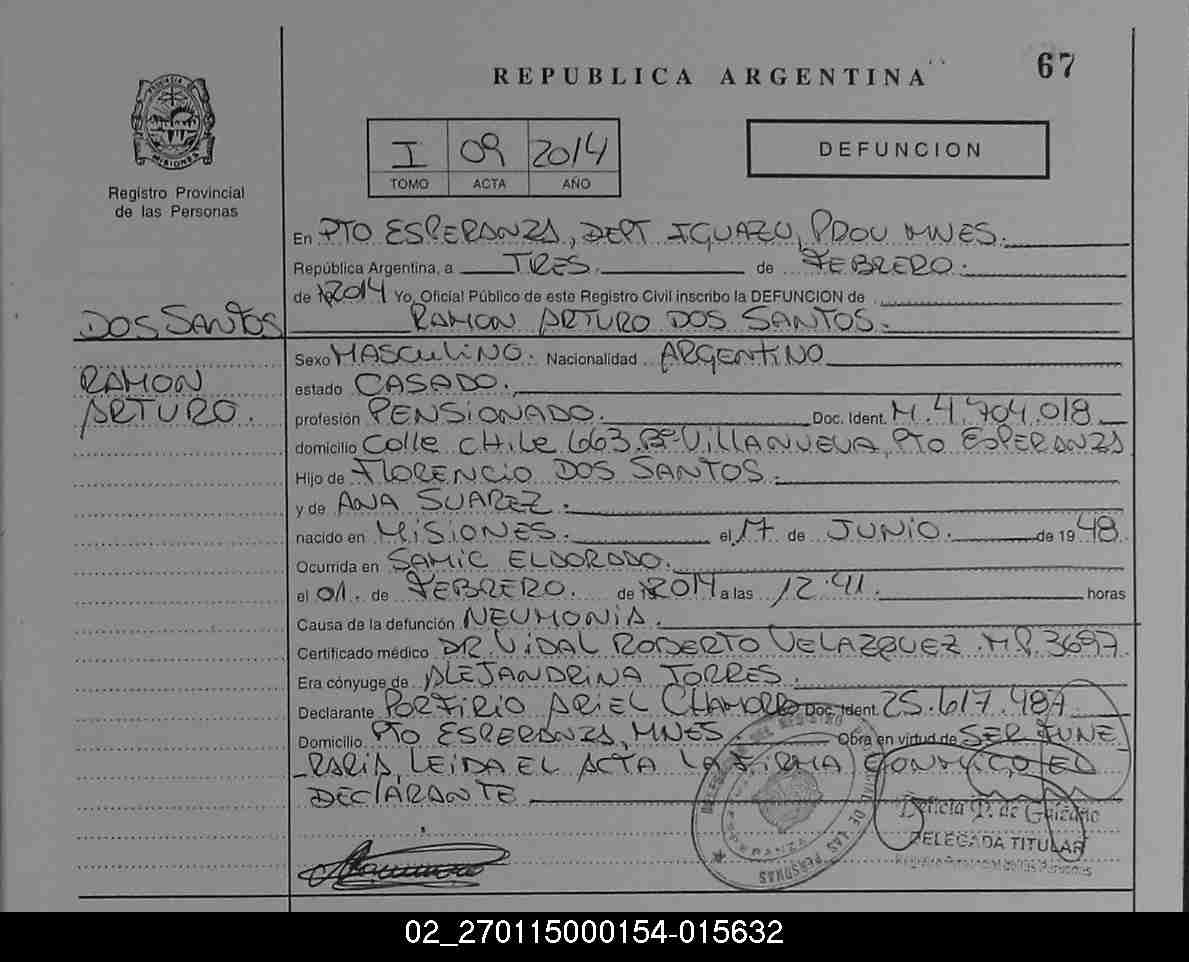 REPUBLICA ARGENTINA
67
PROVINCIA DE
MISIONES
Registro Provincial
de las Personas
I 09 2014
TOMO ACTA AÑO
DEFUNCION
En PTO ESPERANZA, DEPT IGUAZU, PDOV MNES.
República Argentina, a TRES. de FEBRERO.
de 2014 Yo, Oficial Público de este Registro Civil inscribo la DEFUNCION de
DOS SANTOS
RAMON ARTURO DOS SANTOS.
Sexo MASCULINO. Nacionalidad ARGENTINO
RAMON
estado CASADO.
ARTURO.
profesión PENSIONADO. Doc. Ident. M. 4.704.018
domicilio Calle CHILE 663 Bº VILLANUEVA, PTO ESPERANZA
Hijo de FLORENCIO DOS SANTOS.
y de ANA SUAREZ.
nacido en MISIONES. el 17 de JUNIO. de 1948.
Ocurrida en SAMIC ELDORADO.
el 01. de FEBRERO. de 2014 a las 12.41. horas
Causa de la defunción NEUMONIA.
Certificado médico DR. VIDAL ROBERTO VELAZQUEZ. M.P. 3697.
Era cónyuge de ALEJANDRINA TORRES.
Declarante PORFIRIO ARIEL CHAMORRO Doc. Ident. 25.617.487
Domicilio PTO ESPERANZA, MNES Obra en virtud de SER FUNE
RARIA, LEIDA EL ACTA LA FIRMA CONMIGO EL
DECLARANTE
Delicia P. de Galeano
DELEGADA TITULAR
Registro Provincial de las Personas
02_270115000154-015632